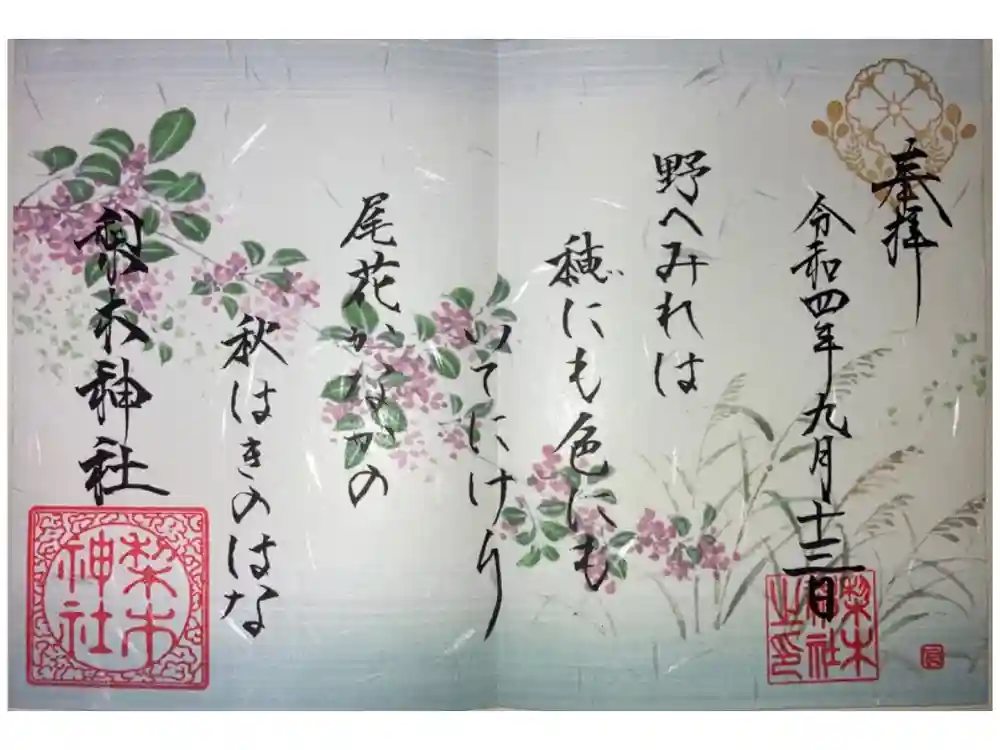 奉拝
令和四年九月十三日
野へみれは
穂にも色にも
いてにけり
尾花かなかの
秋はきのはな
梨木神社
梨木神社
梨木神社之印